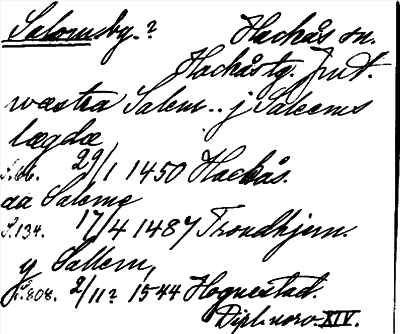 Salomsby.? Hackås sn.
Hackås tg. Jmt.
wæstra Salem.. j Saleems
lægdæ
S.66. 29/1 1450 Hackås.
aa Salome
S.134. 17/4 1487 Trondhjem.
y Sallem,
S.808. 2/11? 1544 Hognestad.
Dipl. norv. XIV.